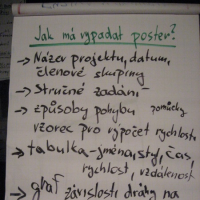 Jak má vypadat poster?
→ Název projektu, datum,
členové skupiny
→ Stručné zadání
→ způsoby pohybu pomůcky
vzorec pro výpočet rychlosti
→ tabulka - jména, styl, čas,
rychlost, vzdálenost
→ graf závislosti dráhy na